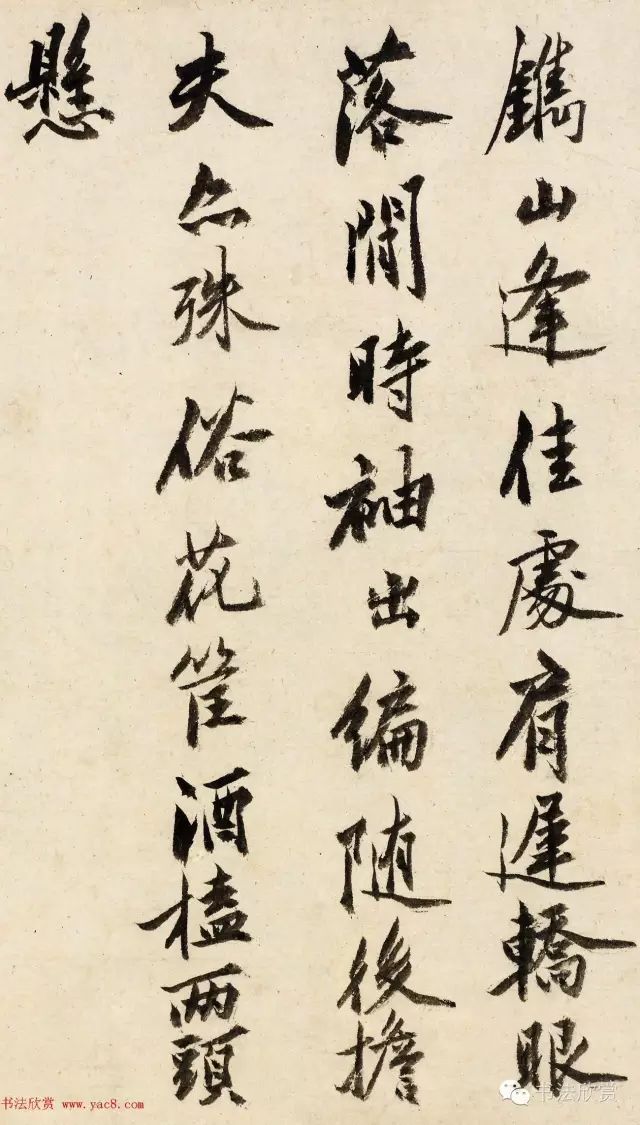 鐫山逢佳處肩遲轎眼
落閒時袖出編随後擔
夫亦殊俗花筐酒榼两頭
懸
书法欣赏 www.yac8.com
书法欣赏